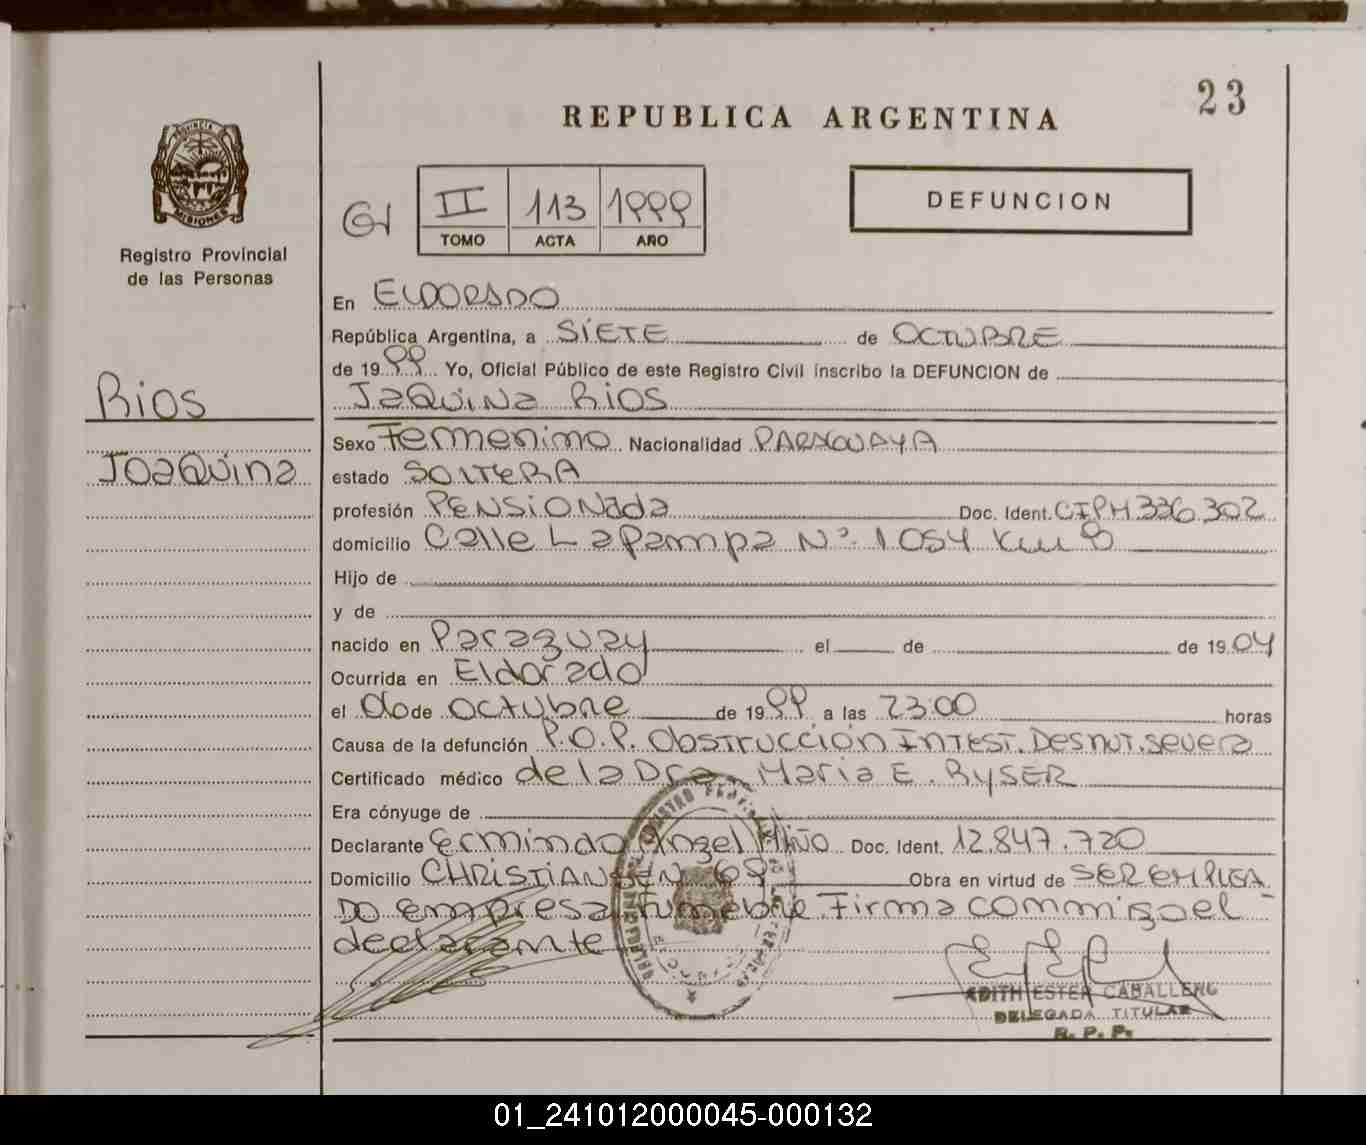 23
REPUBLICA ARGENTINA
PROVINCIA
MISIONES
Registro Provincial
de las Personas
II 113 1999
TOMO ACTA AÑO
DEFUNCION
En ELDORADO
República Argentina, a SIETE de OCTUBRE
de 1999 Yo, Oficial Público de este Registro Civil inscribo la DEFUNCION de
Rios
JOAQUINA
JAQUINA RIOS
Sexo Femenino Nacionalidad PARAGUAYA
estado SOLTERA
profesión PENSIONADA Doc. Ident. CIPM 336.302
domicilio Calle La Pampa Nº 1054 Km 8
Hijo de
y de
nacido en Paraguay el de de 1904
Ocurrida en Eldorado
el 06 de octubre de 1999 a las 23.00 horas
Causa de la defunción P.O.P. Obstrucción INTEST. Desnut. severa
Certificado médico de la Dra. Maria E. RYSER
Era cónyuge de
Declarante Ermindo Angel Miño Doc. Ident. 12.847.720
Domicilio CHRISTIANSEN 69 Obra en virtud de SER EMPLEA
DO empresa Funebre. Firma conmigo el
declarante
EDITH ESTER CABALLERO
DELEGADA TITULAR
R. P. P.
01_241012000045-000132